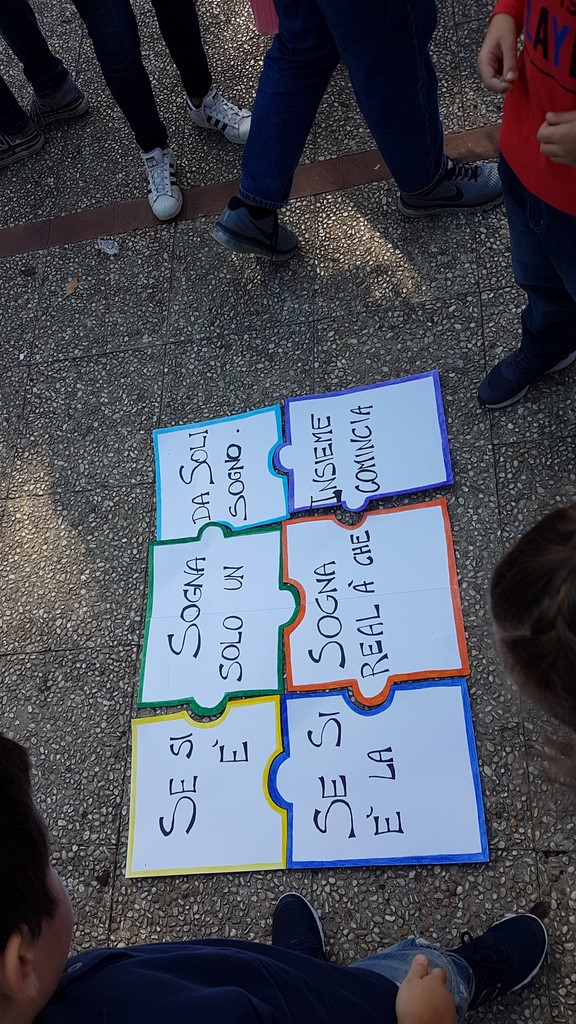 SE SI SOGNA DA SOLI
È SOLO UN SOGNO.
SE SI SOGNA INSIEME
È LA REAL À CHE COMINCIA